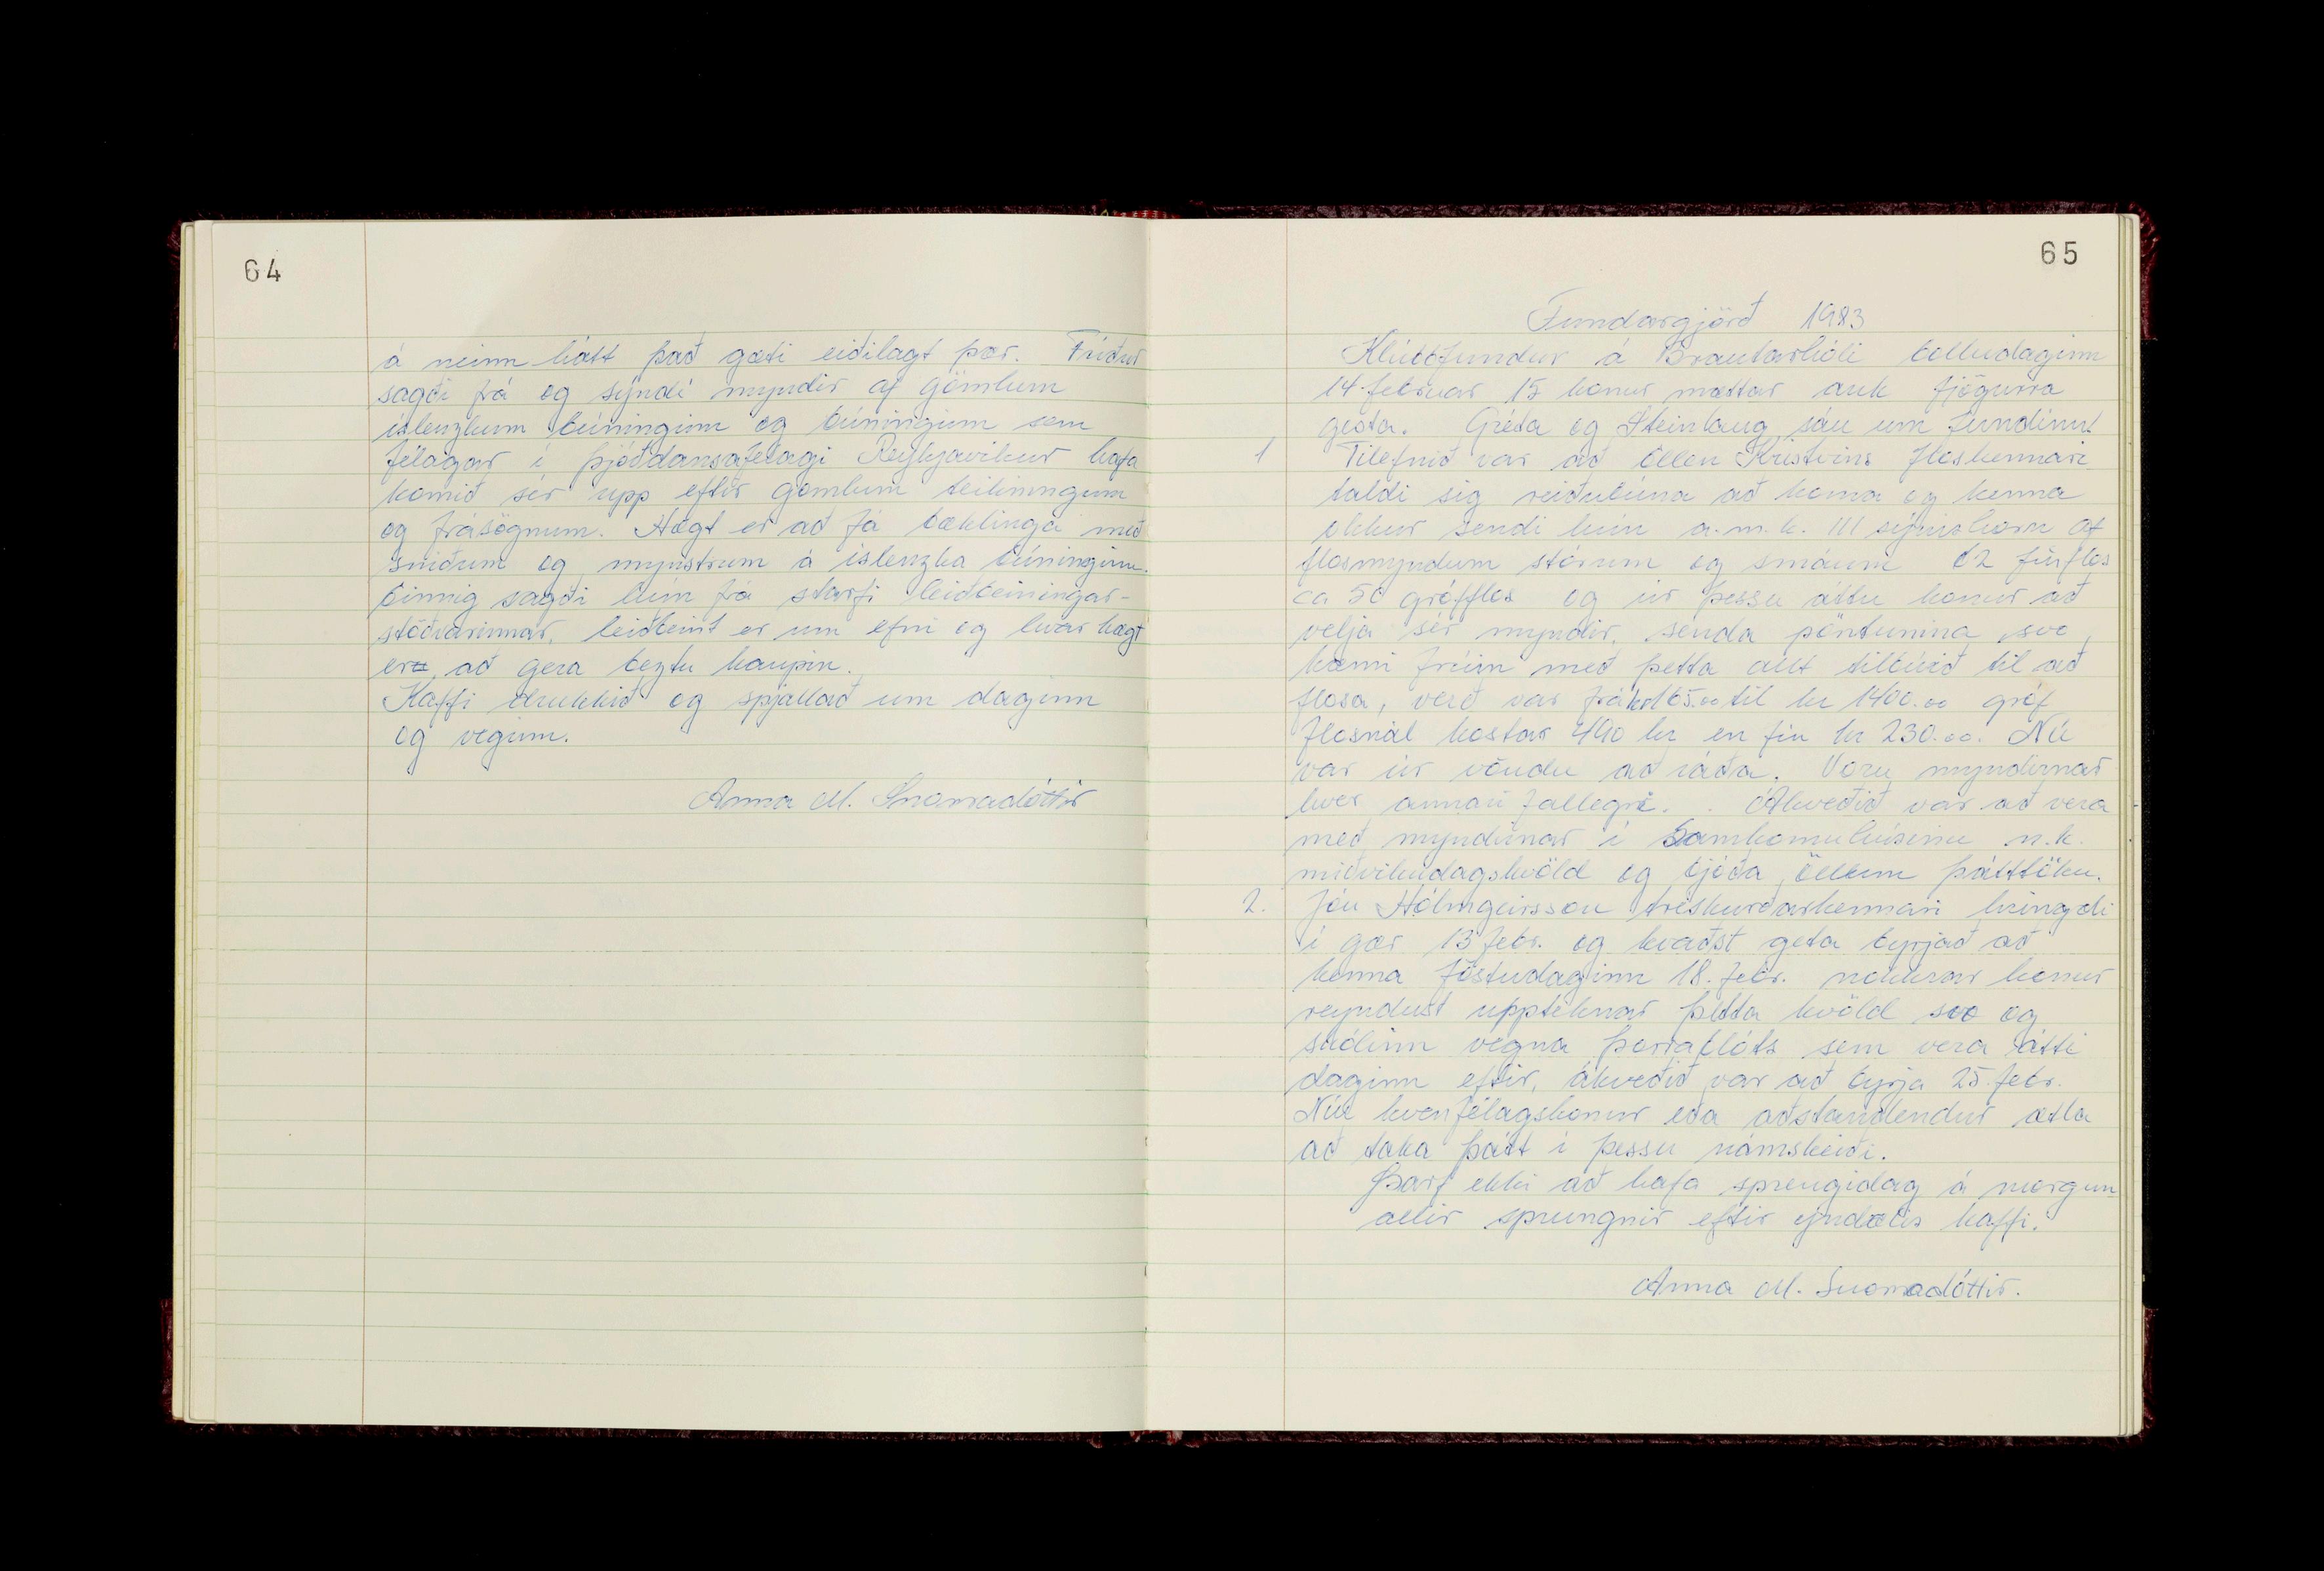 64
á neinn hátt það gæti eiðilagt þær. Fríður
sagði frá og sýndi myndir af gömlum
íslenzkum búningum og búningum sem
félagar í þjóðdansafélagi Reykjavíkur hafa
komið sér upp eftir gömlum teikningum
og frásögnum. Hægt er að fá bæklinga með
sniðum og mynstrum á íslenzka búninginn.
Einnig sagði hún frá starfi leiðbeiningar-
stöðvarinnar, leiðbeint er um efni og hvar hægt
er að gera beztu kaupin.
Kaffi drukkið og spjallað um daginn
og veginn.
Anna M. Snorradóttir
65
Fundargjörð 1983
Klúbbfundur á Brautarhóli bolludaginn
14 februar 15 konur mættar auk fjögurra
gesta. Gréta og Steinlaug sáu um fundinn
1 Tilefnið var að Ellen Kristvins floskennari
taldi sig reiðubúna að koma og kenna
okkur sendi hún a.m.k. 111 sýnishorn af
flosmyndum stórum og smáum 62 fínflos
ca 50 gróf flos og úr þessu áttu konur að
velja sér myndir, senda pöntunina svo
kæmi frúin með þetta allt tilbúið til að
flosa, verð var frá kr 165.00 til kr 1400.00 gróf
flosnál kostar 490 kr en fín kr 230.00. Nú
var úr vöndu að ráða. Voru myndirnar
hver annari fallegri. Ákveðið var að vera
með myndirnar í Samkomuhúsinu n.k.
miðvikudagskvöld og bjóða öllum þátttöku.
2. Jón Hólmgeirsson tréskurðarkennari hringdi
í gær 13 febr. og kvaðst geta byrjað að
kenna föstudaginn 18. febr. nokkrar konur
reyndust uppteknar þetta kvöld svo og
skólinn vegna þorrablóts sem vera átti
daginn eftir, ákveðið var að byrja 25. febr.
Níu kvenfélagskonur eða aðstandendur ætla
að taka þátt í þessu námskeiði.
Þarf ekki að hafa sprengidag á morgun
allir sprungnir eftir yndælis kaffi.
Anna M. Snorradóttir.